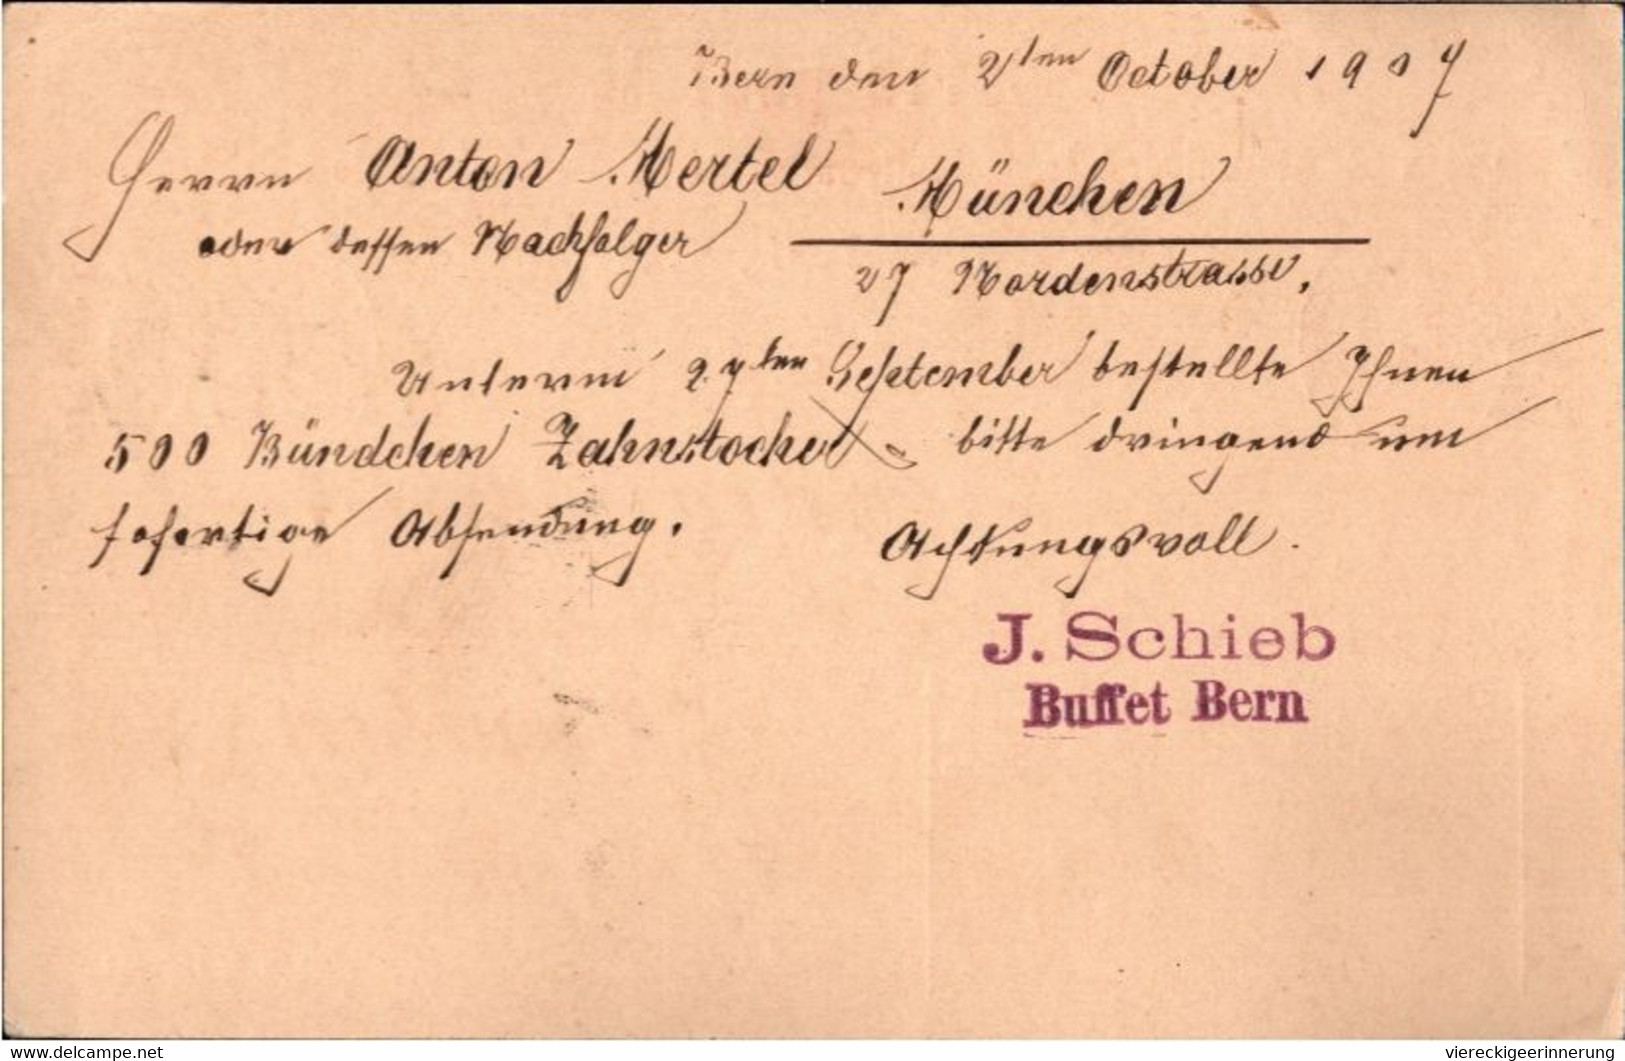 Bern den 2ten October 1907
Herrn Anton Mertel München
oder dessen Nachfolger
27 Nordenstrasse,
Unterm 27ten September bestellte Ihnen
500 Bündchen Zahnstocher bitte dringend um
sofortige Absendung.
Achtungsvoll.
J. Schieb
Buffet Bern
www.delcampe.net
viereckigeerinnerung